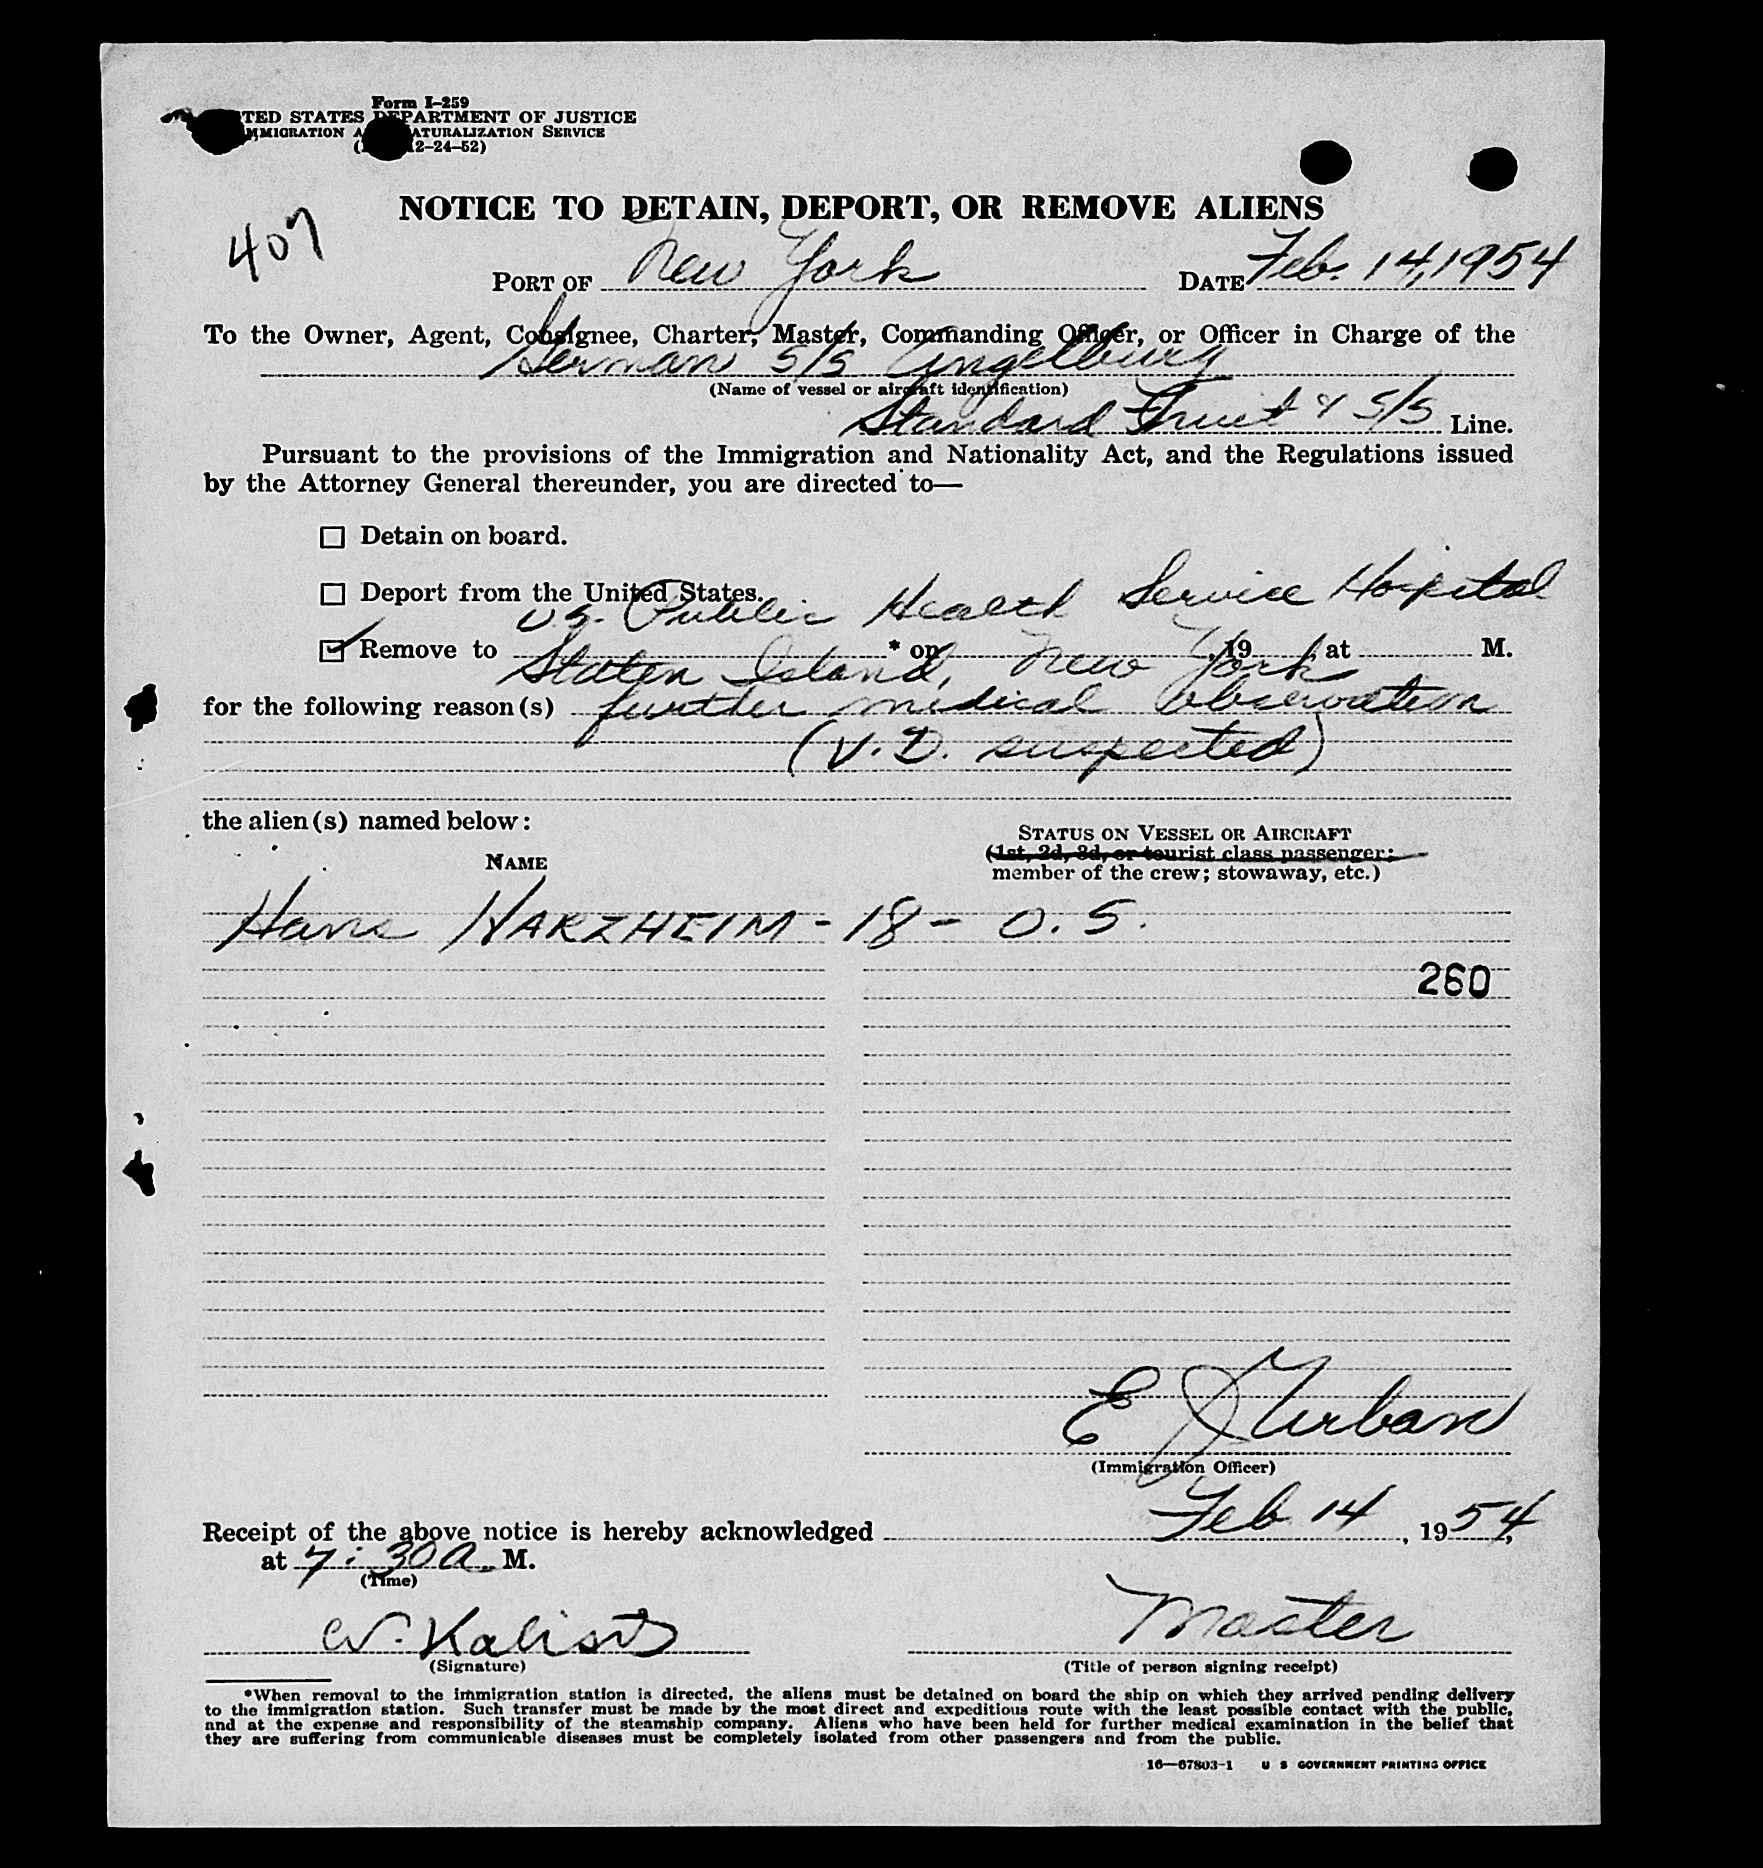 Form I-259
TED STATES DEPARTMENT OF JUSTICE
MMIGRATION A ATURALIZATION SERVICE
( 12-24-52)
407
NOTICE TO DETAIN, DEPORT, OR REMOVE ALIENS
PORT OF New York DATE Feb. 14, 1954
To the Owner, Agent, Consignee, Charter, Master, Commanding Officer, or Officer in Charge of the
German S/S Angelburg
(Name of vessel or aircraft identification)
Standard Fruit & S/S Line.
Pursuant to the provisions of the Immigration and Nationality Act, and the Regulations issued
by the Attorney General thereunder, you are directed to—
☐ Detain on board.
☐ Deport from the United States.
U.S. Public Health Service Hospital
☑ Remove to * on , 19 , at M.
Staten Island, New York
for the following reason(s) further medical observation
(V.D. suspected)
the alien(s) named below:
STATUS ON VESSEL OR AIRCRAFT
NAME (1st, 2d, 3d, or tourist class passenger;
member of the crew; stowaway, etc.)
Hans HARZHEIM - 18 - O.S.
260
E J Urban
(Immigration Officer)
Receipt of the above notice is hereby acknowledged Feb 14, 1954,
at 7:30 A. M.
(Time)
W. Master
(Signature) (Title of person signing receipt)
*When removal to the immigration station is directed, the aliens must be detained on board the ship on which they arrived pending delivery
to the immigration station. Such transfer must be made by the most direct and expeditious route with the least possible contact with the public,
and at the expense and responsibility of the steamship company. Aliens who have been held for further medical examination in the belief that
they are suffering from communicable diseases must be completely isolated from other passengers and from the public.
16—67803-1 U S GOVERNMENT PRINTING OFFICE